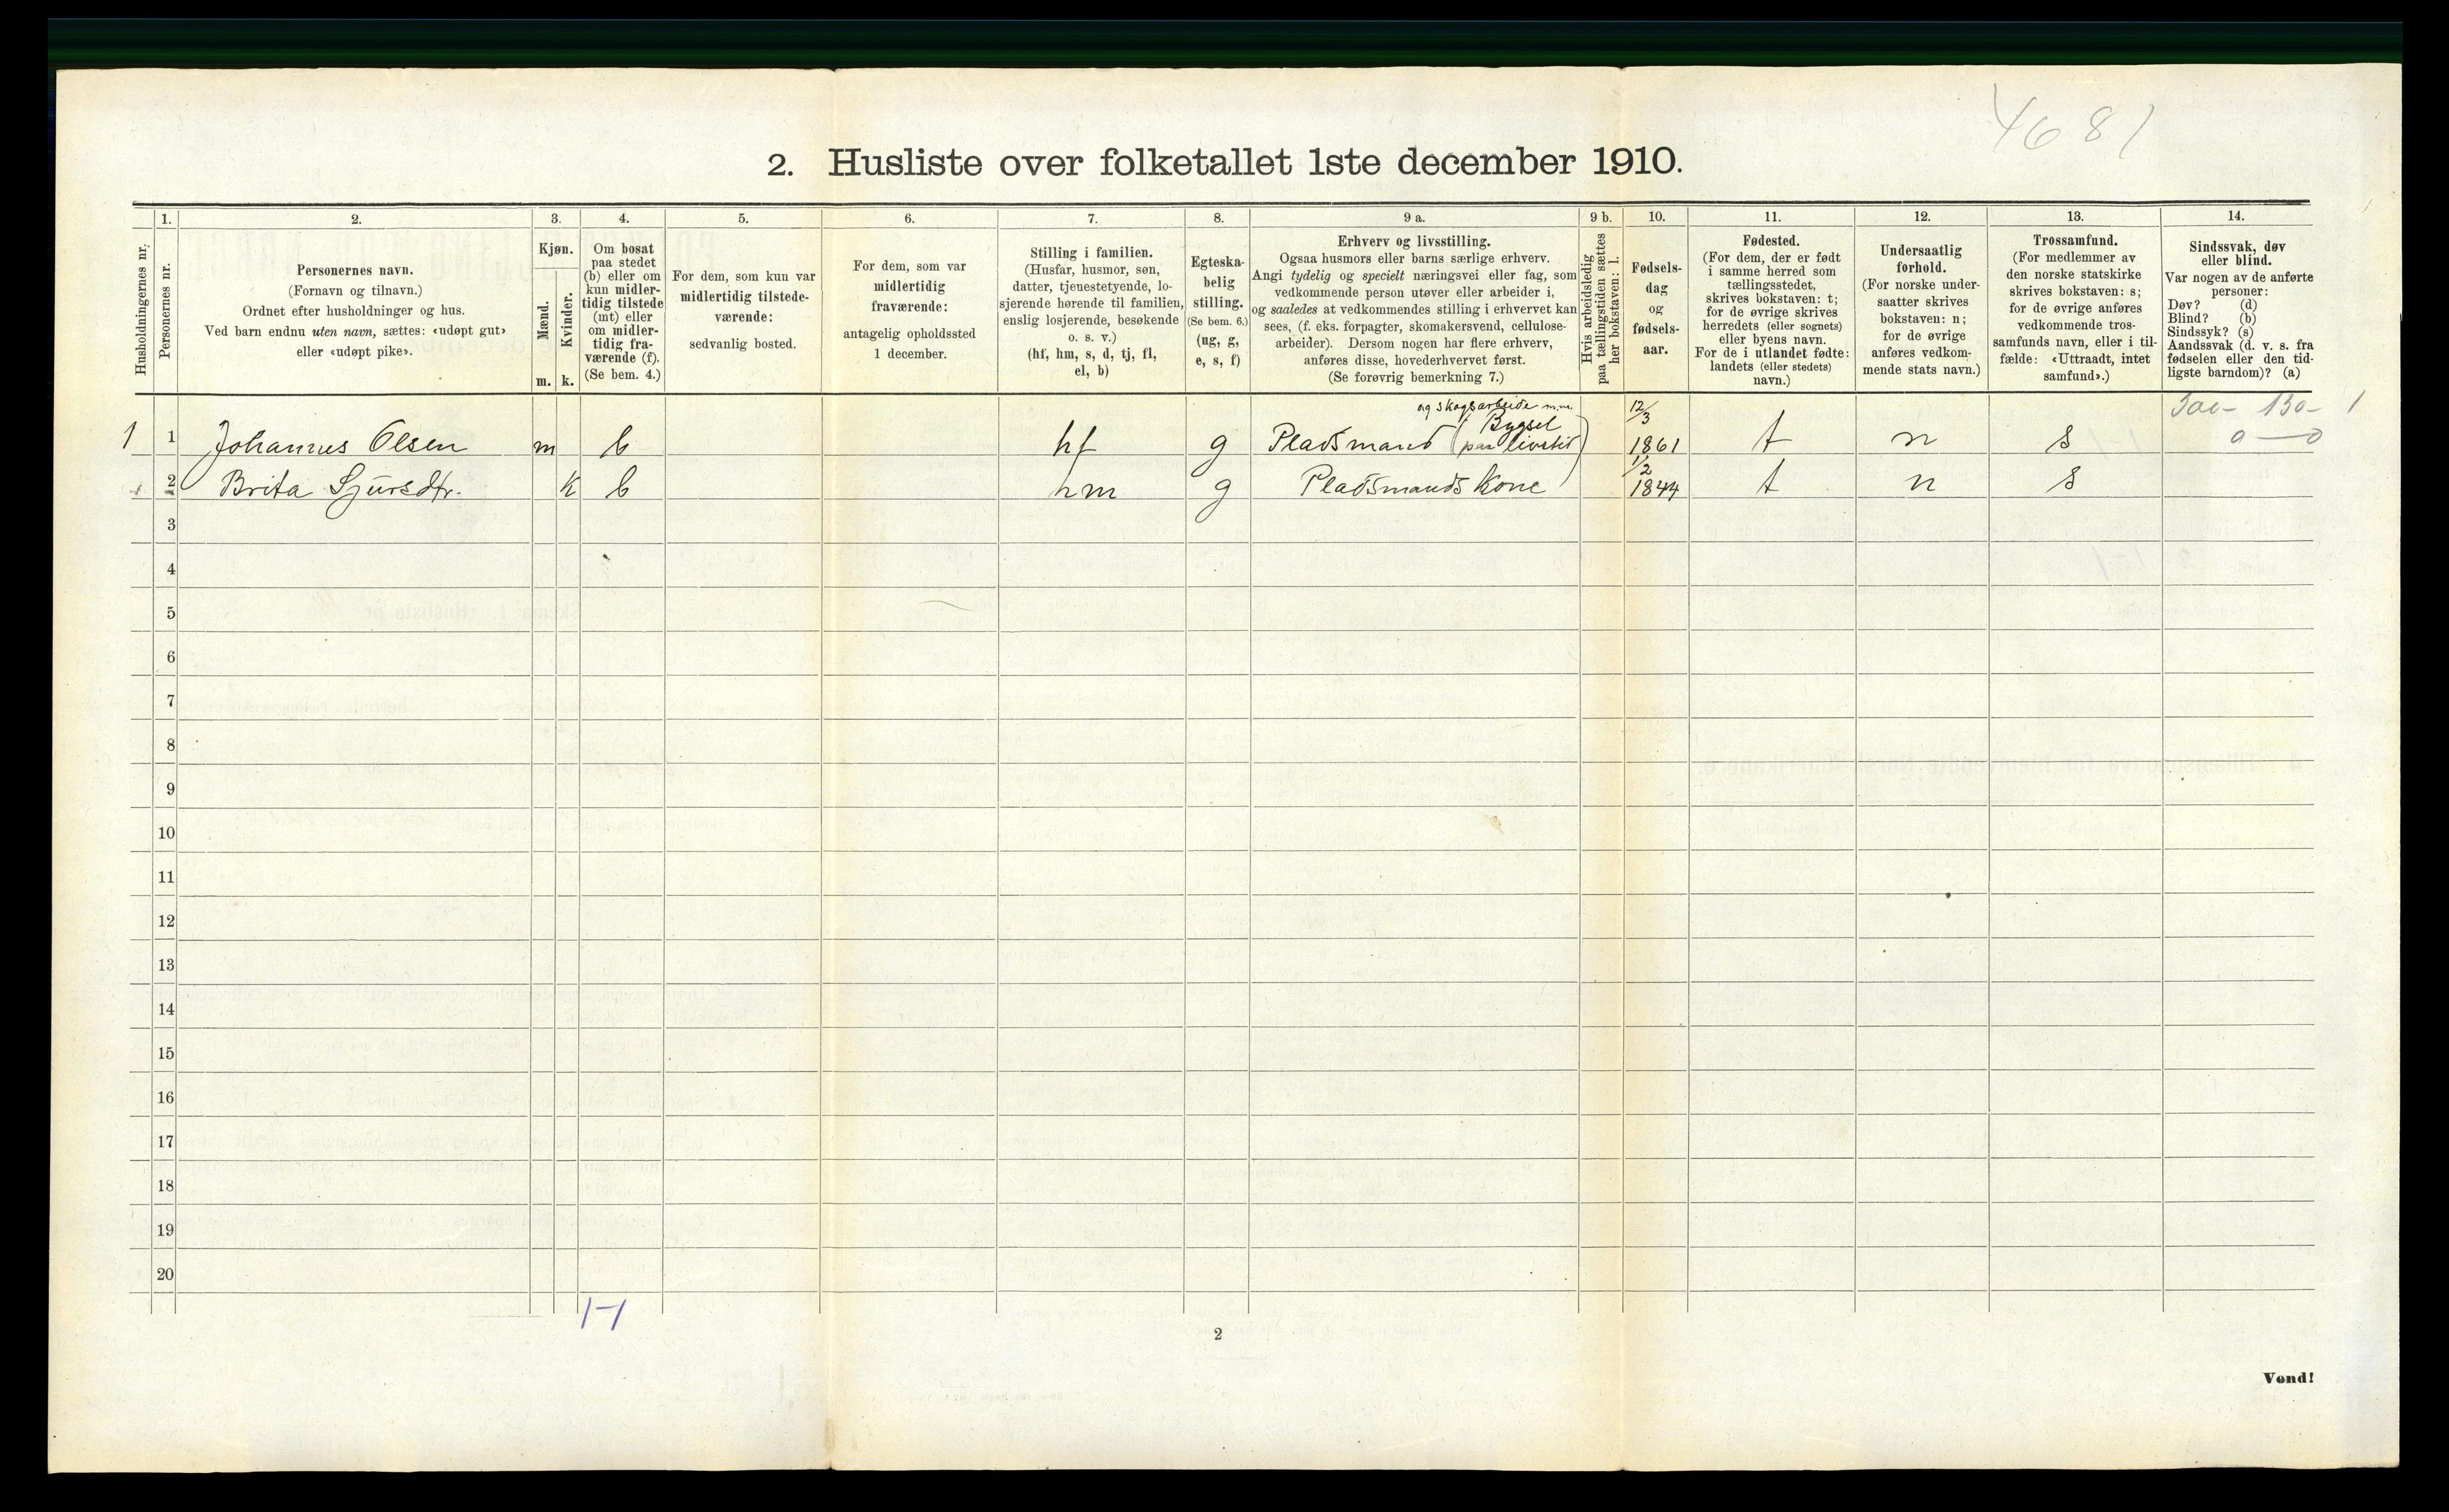 4681
2. Husliste over folketallet 1ste december 1910.
Husholdningernes nr.
1.
Personernes nr.
2.
Personernes navn.
(Fornavn og tilnavn.)
Ordnet efter husholdninger og hus.
Ved barn endnu uten navn, sættes: «udøpt gut»
eller «udøpt pike».
3.
Kjøn.
Mænd.
Kvinder.
m. k.
4.
Om bosat
paa stedet
(b) eller om
kun midler-
tidig tilstede
(mt) eller
om midler-
tidig fra-
værende (f).
(Se bem. 4.)
5.
For dem, som kun var
midlertidig tilstede-
værende:
sedvanlig bosted.
6.
For dem, som var
midlertidig
fraværende:
antagelig opholdssted
1 december.
7.
Stilling i familien.
(Husfar, husmor, søn,
datter, tjenestetyende, lo-
sjerende hørende til familien,
enslig losjerende, besøkende
o. s. v.)
(hf, hm, s, d, tj, fl,
el, b)
8.
Egteska-
belig
stilling.
(Se bem. 6.)
(ug, g,
e, s, f)
9 a.
Erhverv og livsstilling.
Ogsaa husmors eller barns særlige erhverv.
Angi tydelig og specielt næringsvei eller fag, som
vedkommende person utøver eller arbeider i,
og saaledes at vedkommendes stilling i erhvervet kan
sees, (f. eks. forpagter, skomakersvend, cellulose-
arbeider). Dersom nogen har flere erhverv,
anføres disse, hovederhvervet først.
(Se forøvrig bemerkning 7.)
9 b.
Hvis arbeidsledig
paa tællingstiden sættes
her bokstaven: l.
10.
Fødsels-
dag
og
fødsels-
aar.
11.
Fødested.
(For dem, der er født
i samme herred som
tællingsstedet,
skrives bokstaven: t;
for de øvrige skrives
herredets (eller sognets)
eller byens navn.
For de i utlandet fødte:
landets (eller stedets)
navn.)
12.
Undersaatlig
forhold.
(For norske under-
saatter skrives
bokstaven: n;
for de øvrige
anføres vedkom-
mende stats navn.)
13.
Trossamfund.
(For medlemmer av
den norske statskirke
skrives bokstaven: s;
for de øvrige anføres
vedkommende tros-
samfunds navn, eller i til-
fælde: «Uttraadt, intet
samfund».)
14.
Sindssvak, døv
eller blind.
Var nogen av de anførte
personer:
Døv? (d)
Blind? (b)
Sindssyk? (s)
Aandssvak (d. v. s. fra
fødselen eller den tid-
ligste barndom)? (a)
og skogsarbeide m.m. 12/3 300 - 130 - 1
1 1 Johannes Olsen m b hf g Pladsmand (Bygsel paa livstid) 1861 t n s 0 — 0
2 Brita Sjursdtr. k b hm g Pladsmands Kone 1/2 1844 t n s
3
4
5
6
7
8
9
10
11
12
13
14
15
16
17
18
19
20
1-1
2
Vend!